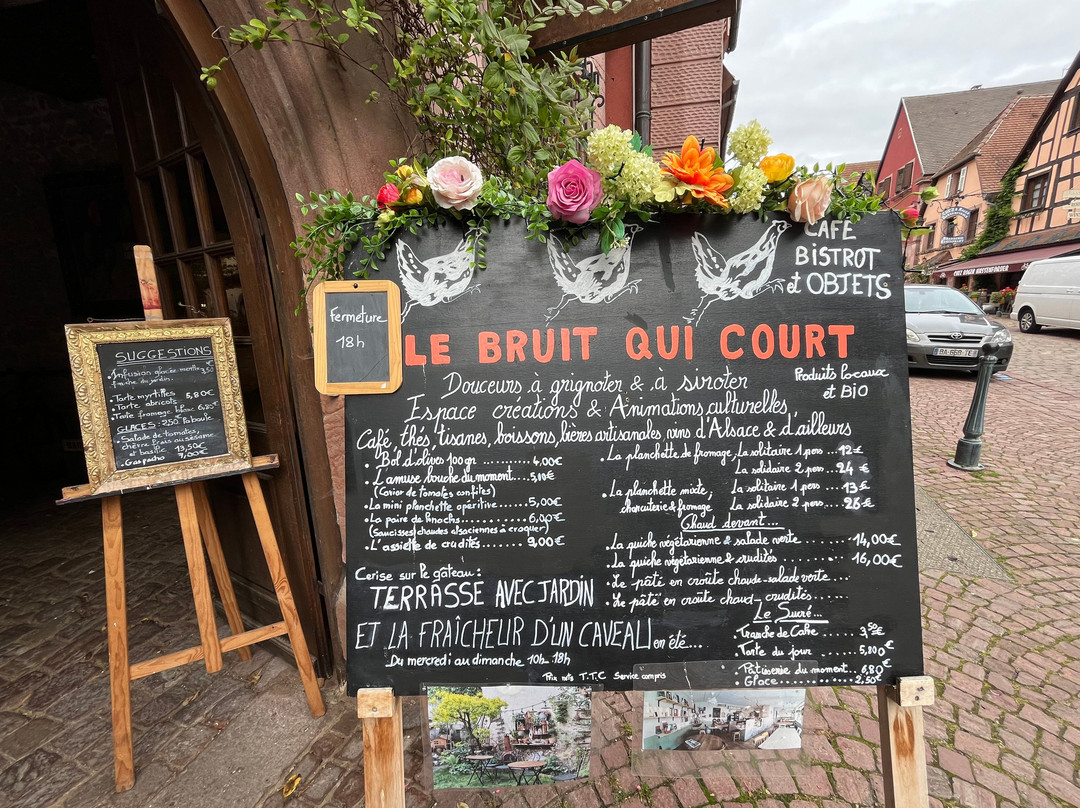 SUGGESTIONS
Infusion glacée menthe 3,50
fraiche du jardin.
Tarte myrtilles 5,80€
Tarte abricots
Tarte fromage blanc 6,80€
GLACES: 2,50€ la boule
Salade de tomates,
chèvre frais au sésame
et basilic 13,50€
Gaspacho 7,00€
Fermeture
18h
CAFÉ
BISTROT
et OBJETS
LE BRUIT QUI COURT
Douceurs à grignoter & à siroter
Produits Locaux
et BIO
Espace créations & Animations culturelles
Café, thés, tisanes, boissons, bières artisanales, vins d'Alsace & d'ailleurs
• Bol d'olives 100gr .......... 4,00€
• L'amuse bouche du moment.... 5,00€
(Caviar de Tomates confites)
• La mini planchette apéritive ..... 5,00€
• La paire de Knacks.......... 6,00€
(Saucisses chaudes alsaciennes à croquer)
• L'assiette de crudités....... 9,00€
• La planchette de fromage, La solitaire 1 pers ... 12€
La solidaire 2 pers.. 24€
• La planchette mixte, La solitaire 1 pers .... 13€
charcuterie & fromage La solidaire 2 pers.... 26€
Chaud devant...
• La quiche végétarienne & salade verte.......... 14,00€
• La quiche végétarienne & crudités............. 16,00€
• Le pâté en croûte chaud-salade verte...
• Le pâté en croûte chaud-crudités......
Le Sucré...
• Tranche de Cake ...... 3,50€
• Tarte du jour ........ 5,80€
• Pâtisserie du moment.... 6,80€
• Glace................ 2,50€
Cerise sur le gâteau :
TERRASSE AVEC JARDIN
ET LA FRAÎCHEUR D'UN CAVEAU en été...
Du mercredi au dimanche 10h-18h
Prix nets T.T.C Service compris
BA-668-TE